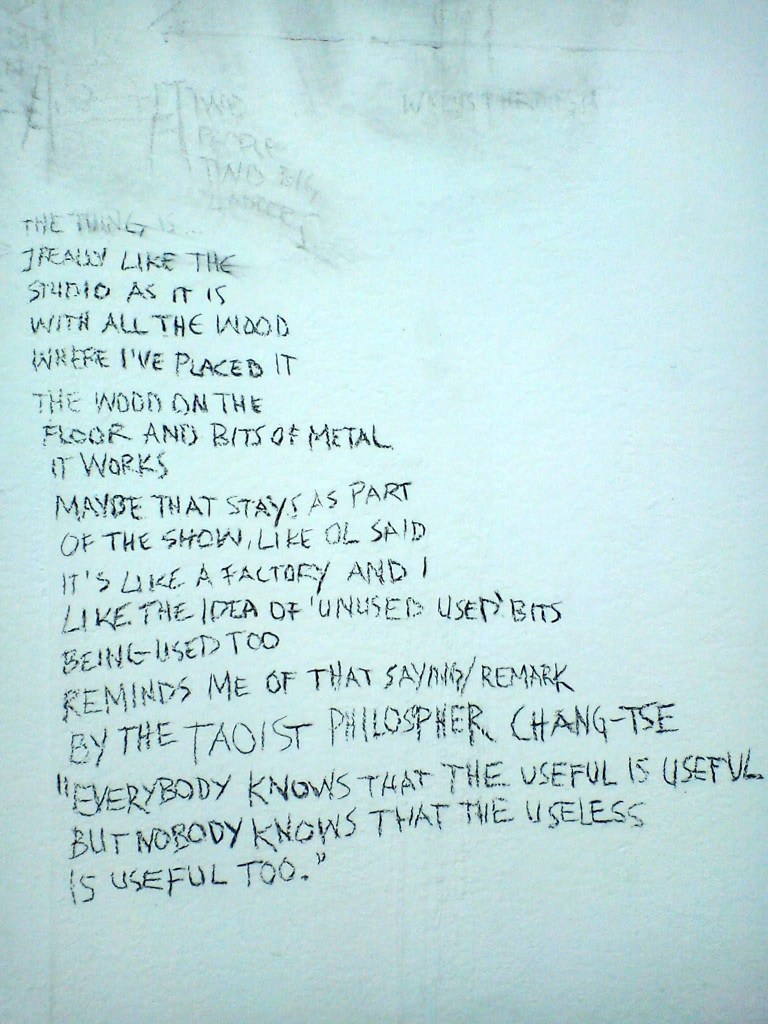 AND
PEOPLE
FIND BIG
THE THING IS...
I REALLY LIKE THE
STUDIO AS IT IS
WITH ALL THE WOOD
WHERE I'VE PLACED IT
THE WOOD ON THE
FLOOR AND BITS OF METAL
IT WORKS
MAYBE THAT STAYS AS PART
OF THE SHOW, LIKE OL SAID
IT'S LIKE A FACTORY AND I
LIKE THE IDEA OF 'UNUSED USED' BITS
BEING USED TOO
REMINDS ME OF THAT SAYING/REMARK
BY THE TAOIST PHILOSPHER, CHANG-TSE
"EVERYBODY KNOWS THAT THE USEFUL IS USEFUL
BUT NOBODY KNOWS THAT THE USELESS
IS USEFUL TOO."